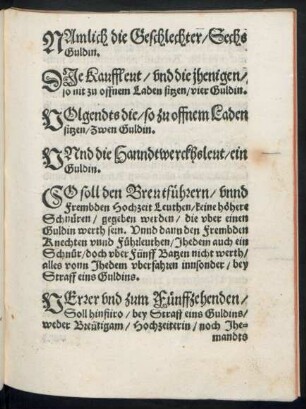 NAmlich die Geschlechter/Sechs
Guldin.
DJe Kauffleut / vnd die jhenigen/
so nit zu offnem Laden sitzen/vier Guldin.
VOlgendts die/so zu offnem Laden
sitzen/Zwen Guldin.
VNnd die Hanndtwerckhsleut/ein
Guldin.
SO soll den Breutführern/ vnnd
Frembden Hochzeit Leuthen/keine höhere
Schnüren/ gegeben werden/ die vber einen
Guldin werth sein. Vnnd dann den Frembden
Knechten vnnd Fuhrleuthen/Jhedem auch ein
Schnür/doch vber Fünff Batzen nicht werth/
alles vonn Jhedem vberfahren innsonder/bey
Straff eins Guldins.
VErrer vnd zum Fünffzehenden/
Soll hinfüro/bey Straff eins Guldins/
weder Breütigam/ Hochzeiterin/ noch Jhe-
mandts